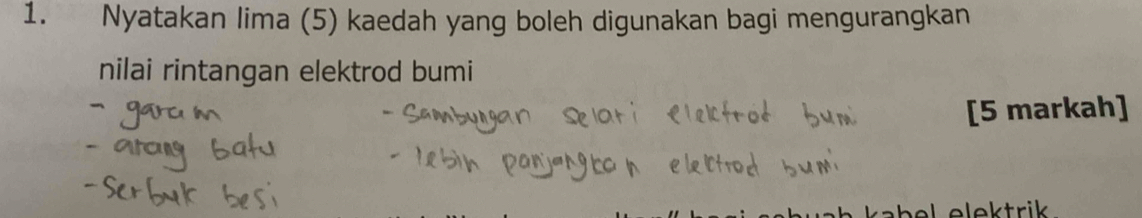 1. Nyatakan lima (5) kaedah yang boleh digunakan bagi mengurangkan
nilai rintangan elektrod bumi
- garam
- arang batu
- Serbuk besi
- Sambungan selari elektrod bumi
- lebih panjangkan elektrod bumi
[5 markah]
kabel elektrik